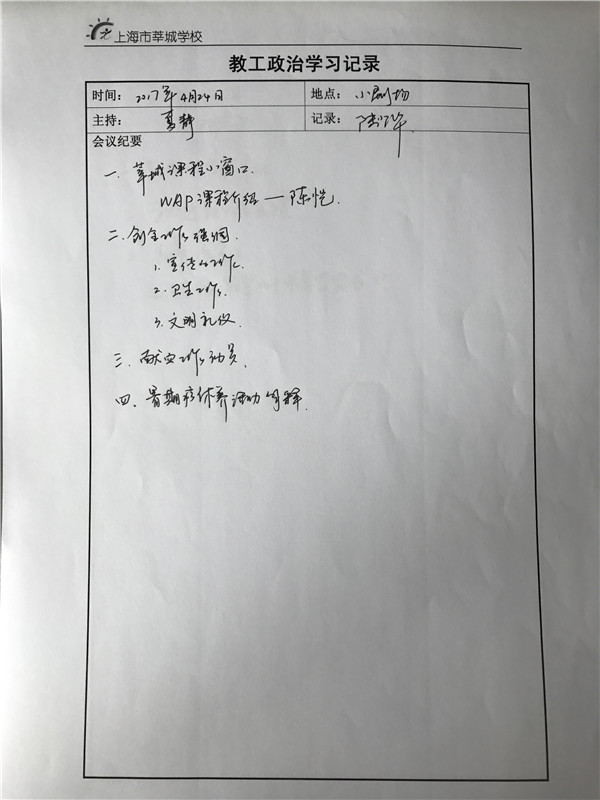 上海市莘城学校
教工政治学习记录
时间: 2017年4月24日 地点: 小剧场
主持: 静 记录: 陆
会议纪要
一. 莘城课程小窗口.
WAP课程介绍 — 陈恺
二. 创全工作强调.
1. 宣传工作.
2. 卫生工作.
3. 文明礼仪.
三. 献血工作动员.
四. 暑期疗休养活动解释.